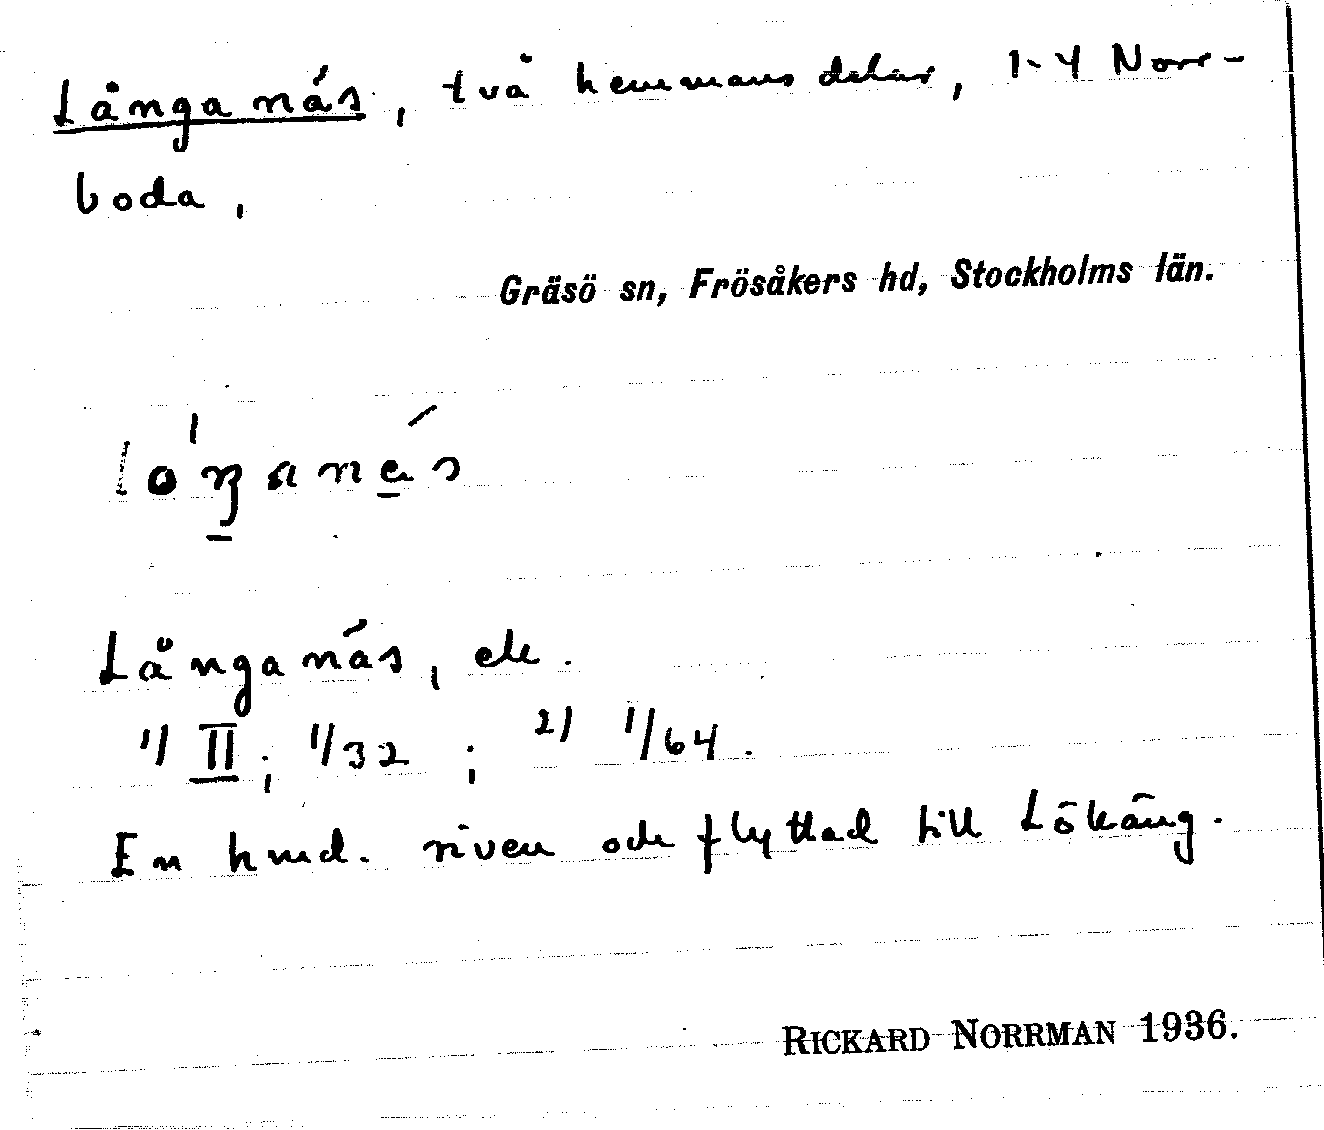 Långanäs, två hemmansdelar, 1-4 Norr-
boda,
Gräsö sn, Frösåkers hd, Stockholms län.
Långanäs, ek.
1) II; 1/32; 2) 1/64.
En hmd. riven och flyttad till Lökäng.
RICKARD NORRMAN 1936.